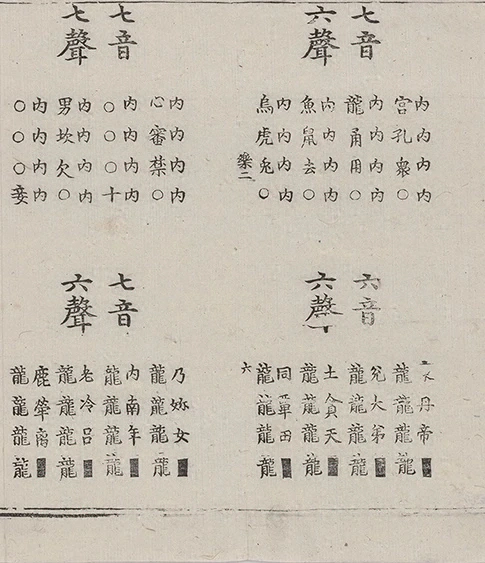 七音
六聲
内内内内
宮孔衆○
内内内内
龍甬用○
内内内内
魚鼠去○
内内内内
烏虎兔○
樂二
六音
六聲
丹帝■
龍龍龍龍
兌大弟■
龍龍龍龍
土貪天■
龍龍龍龍
同覃田■
龍龍龍龍
六
七音
七聲
内内内内
心審禁○
内内内内
○○○十
内内内内
男坎欠○
内内内内
○○○妾
七音
六聲
乃妳女■
龍龍龍龍
内南年■
龍龍龍龍
老冷呂■
龍龍龍龍
鹿犖离■
龍龍龍龍